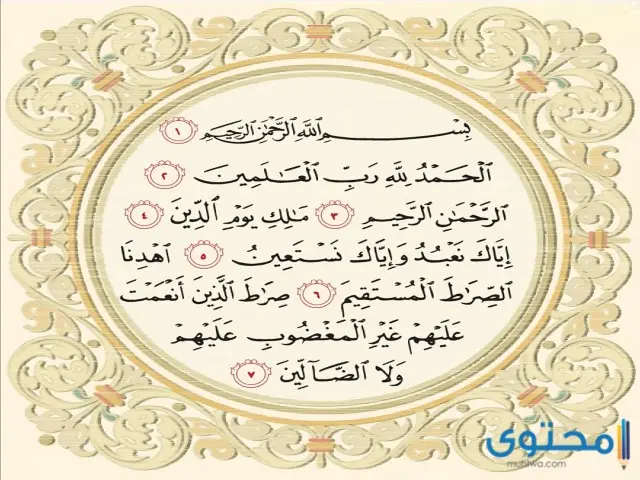 بِسْمِ ٱللَّهِ ٱلرَّحْمَٰنِ ٱلرَّحِيمِ ١
ٱلْحَمْدُ لِلَّهِ رَبِّ ٱلْعَٰلَمِينَ ٢
ٱلرَّحْمَٰنِ ٱلرَّحِيمِ ٣ مَٰلِكِ يَوْمِ ٱلدِّينِ ٤
إِيَّاكَ نَعْبُدُ وَإِيَّاكَ نَسْتَعِينُ ٥ ٱهْدِنَا
ٱلصِّرَٰطَ ٱلْمُسْتَقِيمَ ٦ صِرَٰطَ ٱلَّذِينَ أَنْعَمْتَ
عَلَيْهِمْ غَيْرِ ٱلْمَغْضُوبِ عَلَيْهِمْ
وَلَا ٱلضَّآلِّينَ ٧
محتوى
muhtwa.com